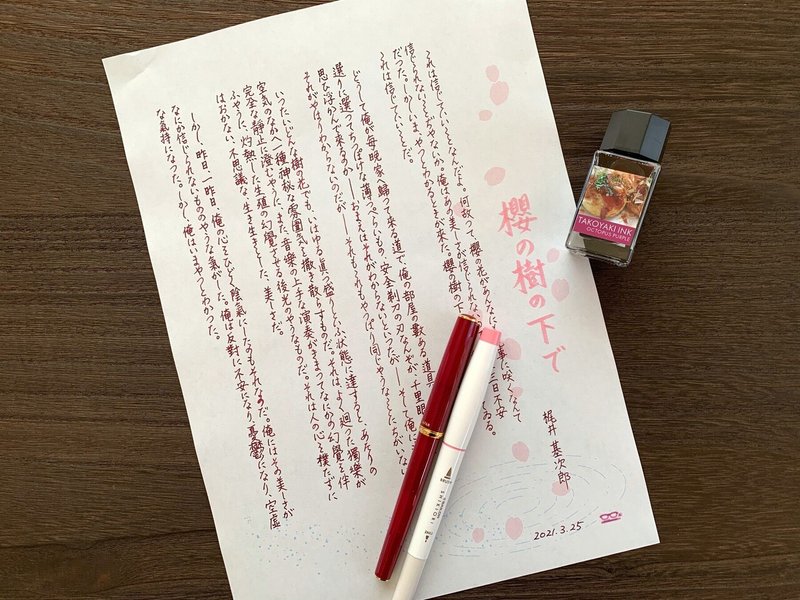 櫻の樹の下で
梶井 基次郎
これは信じていいことなんだよ。何故って、櫻の花があんなに 事に咲くなんて
信じられないことぢゃないか。俺はあの美しさが信じられない 三日不安
だった。しかしいま、やっとわかるときが来た。櫻の樹の下 てゐる。
これは信じていいことだ。
どうして俺が毎晩家へ歸って来る道で、俺の部屋の數ある道具
選りに選ってちっぽけな薄っぺらいもの、安全剃刀の刃なんぞが、千里眼
思ひ浮かんで来るのか――おまえはそれがわからないといったが――そして俺に
それがやはりわからないのだが――それもこれもやっぱり同じやうなことにちがいない
いったいどんな樹の花でも、いはゆる真っ盛りといふ状態に達すると、あたりの
空気のなかへ一種神秘な雰囲気を撒き散らすものだ。それは、よく廻った獨樂が
完全な静止に澄むやうに、また、音樂の上手な演奏がきまってなにかの幻覺を伴
ふやうに、灼熱した生殖の幻覺させる後光のやうなものだ。それは人の心を撲たずに
はおかない、不思議な、生き生きとした、美しさだ。
しかし、昨日、一昨日、俺の心をひどく陰氣にしたのもそれなのだ。俺にはその美しさが
なにか信じられないもののやうな氣がした。俺は反對に不安になり、憂鬱になり、空虚
な氣持になった。しかし、俺はいまやっとわかった。
2021.3.25
TAKOYAKI INK
OCTOPUS PURPLE